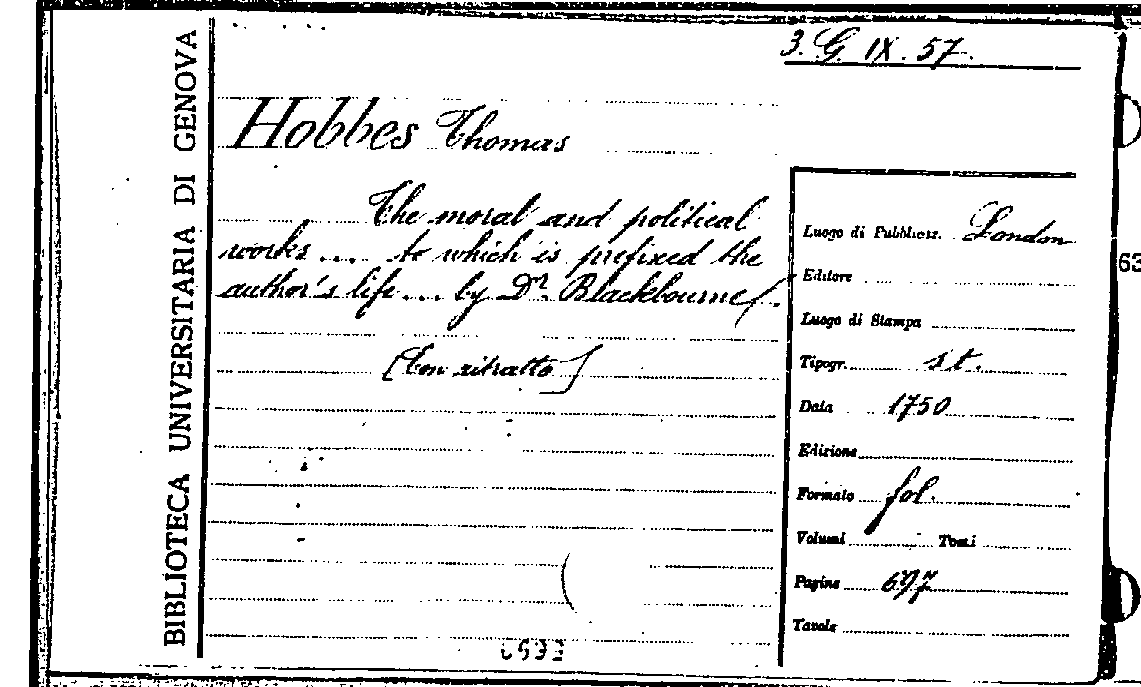 3. G. IX. 57.
BIBLIOTECA UNIVERSITARIA DI GENOVA
Hobbes Thomas
The moral and political
works ... to which is prefixed the
author's life ... by Dr. Blackbourne/.
[Con ritratto]
Luogo di Pubblicaz. London
Editore
Luogo di Stampa
Tipogr. s.t.
Data 1750
Edizione
Formato fol.
Volumi Tomi
Pagine 697
Tavole
63